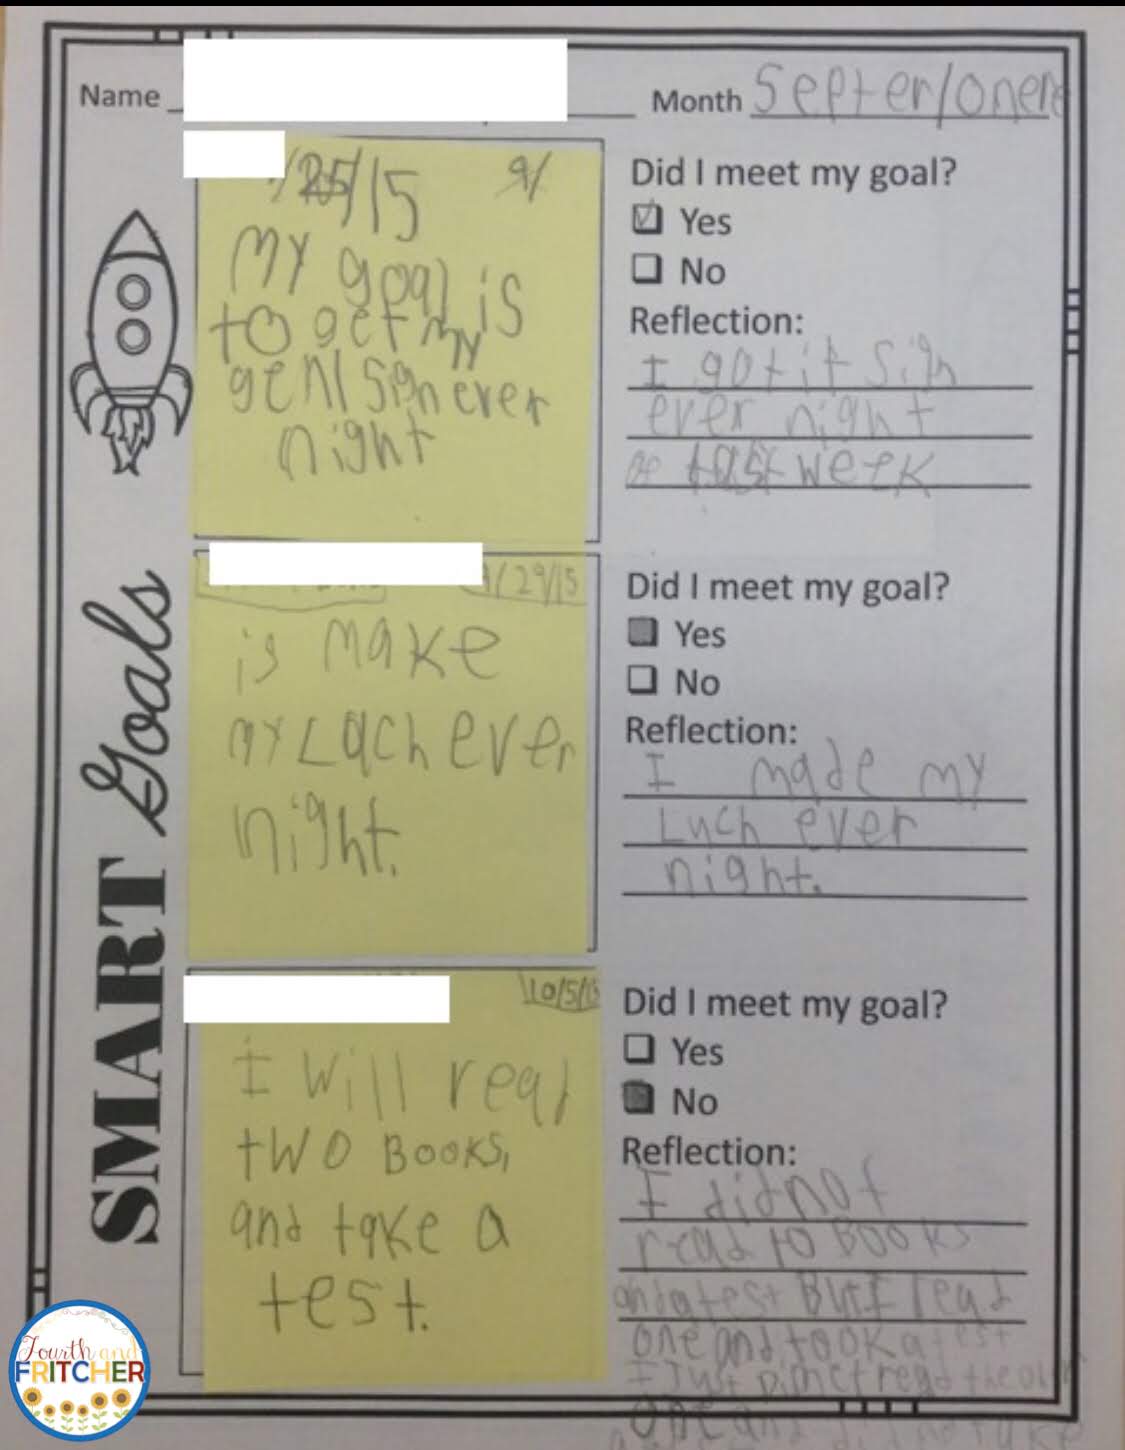 Name
Month Septer/oner
/25/15 9/
My goal is
to get my
genl sign ever
night
Did I meet my goal?
Yes
No
Reflection:
I got it sign
ever night
last week
SMART Goals
9/29/15
is make
my Lach ever
night.
Did I meet my goal?
Yes
No
Reflection:
I made my
Luch ever
night.
10/5/15
I will read
two Books,
and take a
test.
Did I meet my goal?
Yes
No
Reflection:
I did not
read to Books
and a test But I read
one and took a test
I Just Didnct read the other
one and did not take
Fourth and
FRITCHER